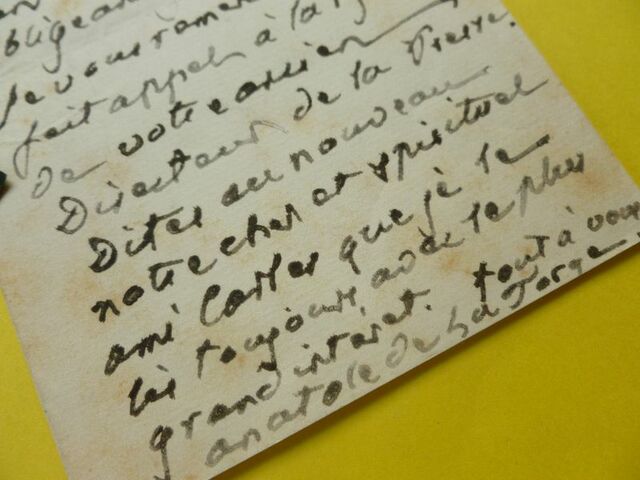 obligean
de vous remer
fait appel à la
de votre ancien
Directeur de la Presse.
Dites au nouveau
notre cher et spirituel
ami Carles que je le
lis toujours avec le plus
grand intéret. tout à vous
anatole de La Forge.